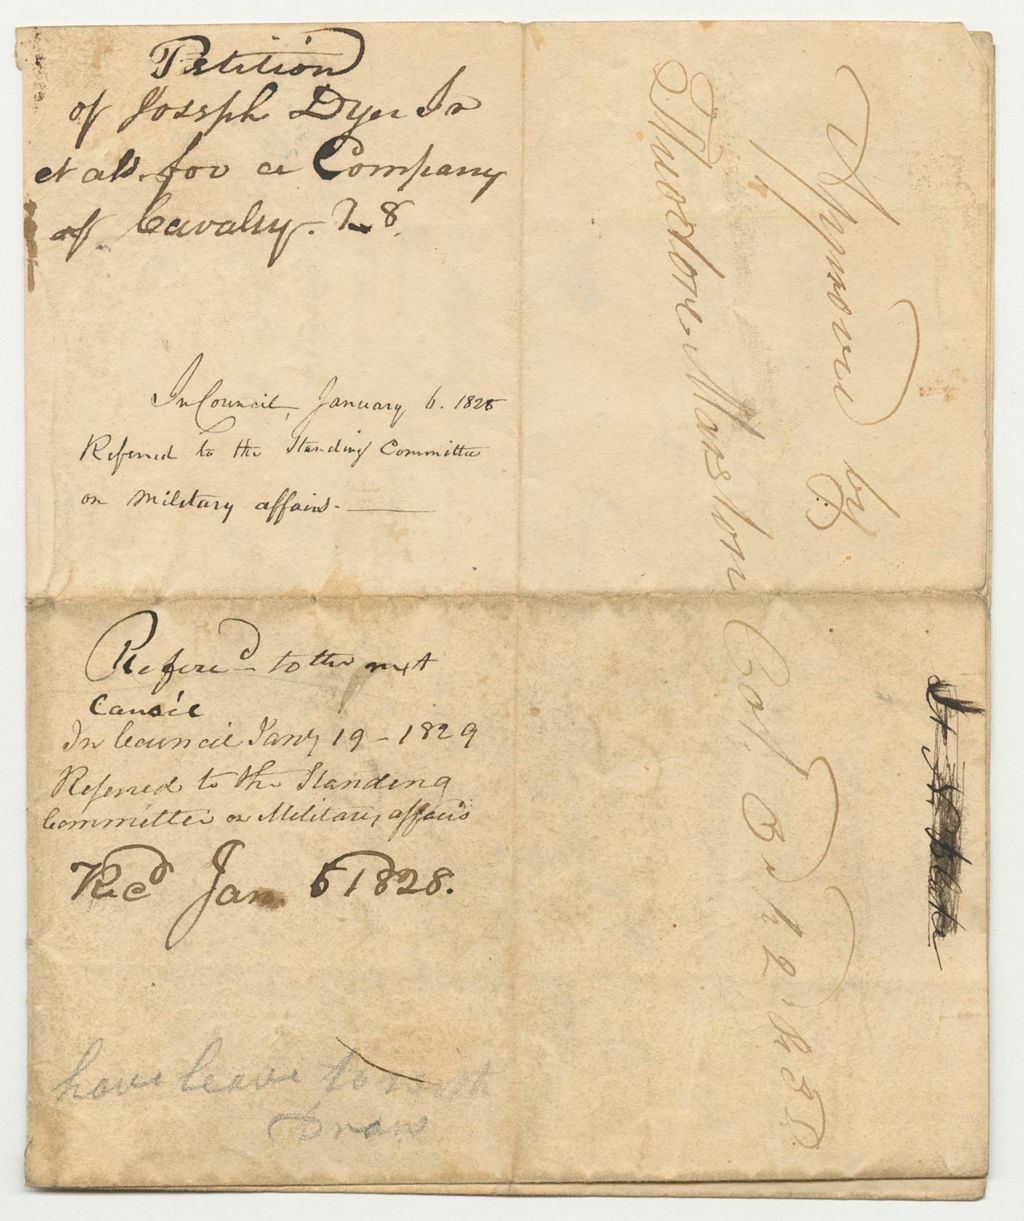 Petition
of Joseph Dyer Jr
et als. for a Company
of Cavalry.
In Council, January 6. 1828
Referred to the Standing Committee
on Military affairs.
Refered to the next
Cancil
In Council Jany 19 - 1829
Referred to the Standing
Committee on Military affairs
Recd Jan. 6 1828.
have leave to with
Draw
Approved by
Theodore Marston Col. 3d R 2d B 5 D.